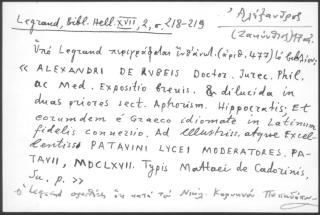 Legrand, Bibl. Hell. XVII, 2, σ. 218-219
Ἀλέξανδρος
Ὑπὸ Legrand περιγράφεται ἐνθ' ἀνωτ. (ἀριθ. 477) τὸ βιβλίον:
« ALEXANDRI DE RUBEIS Doctor. Jurec. Phil.
ac Med. Expositio brevis. & dilucida in
duas priores sect. Aphorism. Hippocratis; Et
eorumdem é Graeco idiomate in Latinum
fidelis connersio. Ad Illustriss. atque Excel-
lentissos PATAVINI LYCEI MODERATORES. PA-
TAVII, MDCLXVII. Typis Mattaei de Cadorinis,
Su. p. »
ὁ Legrand σημειώνει ὅτι κατὰ τὸν Νικόλ. Καρυννὸν